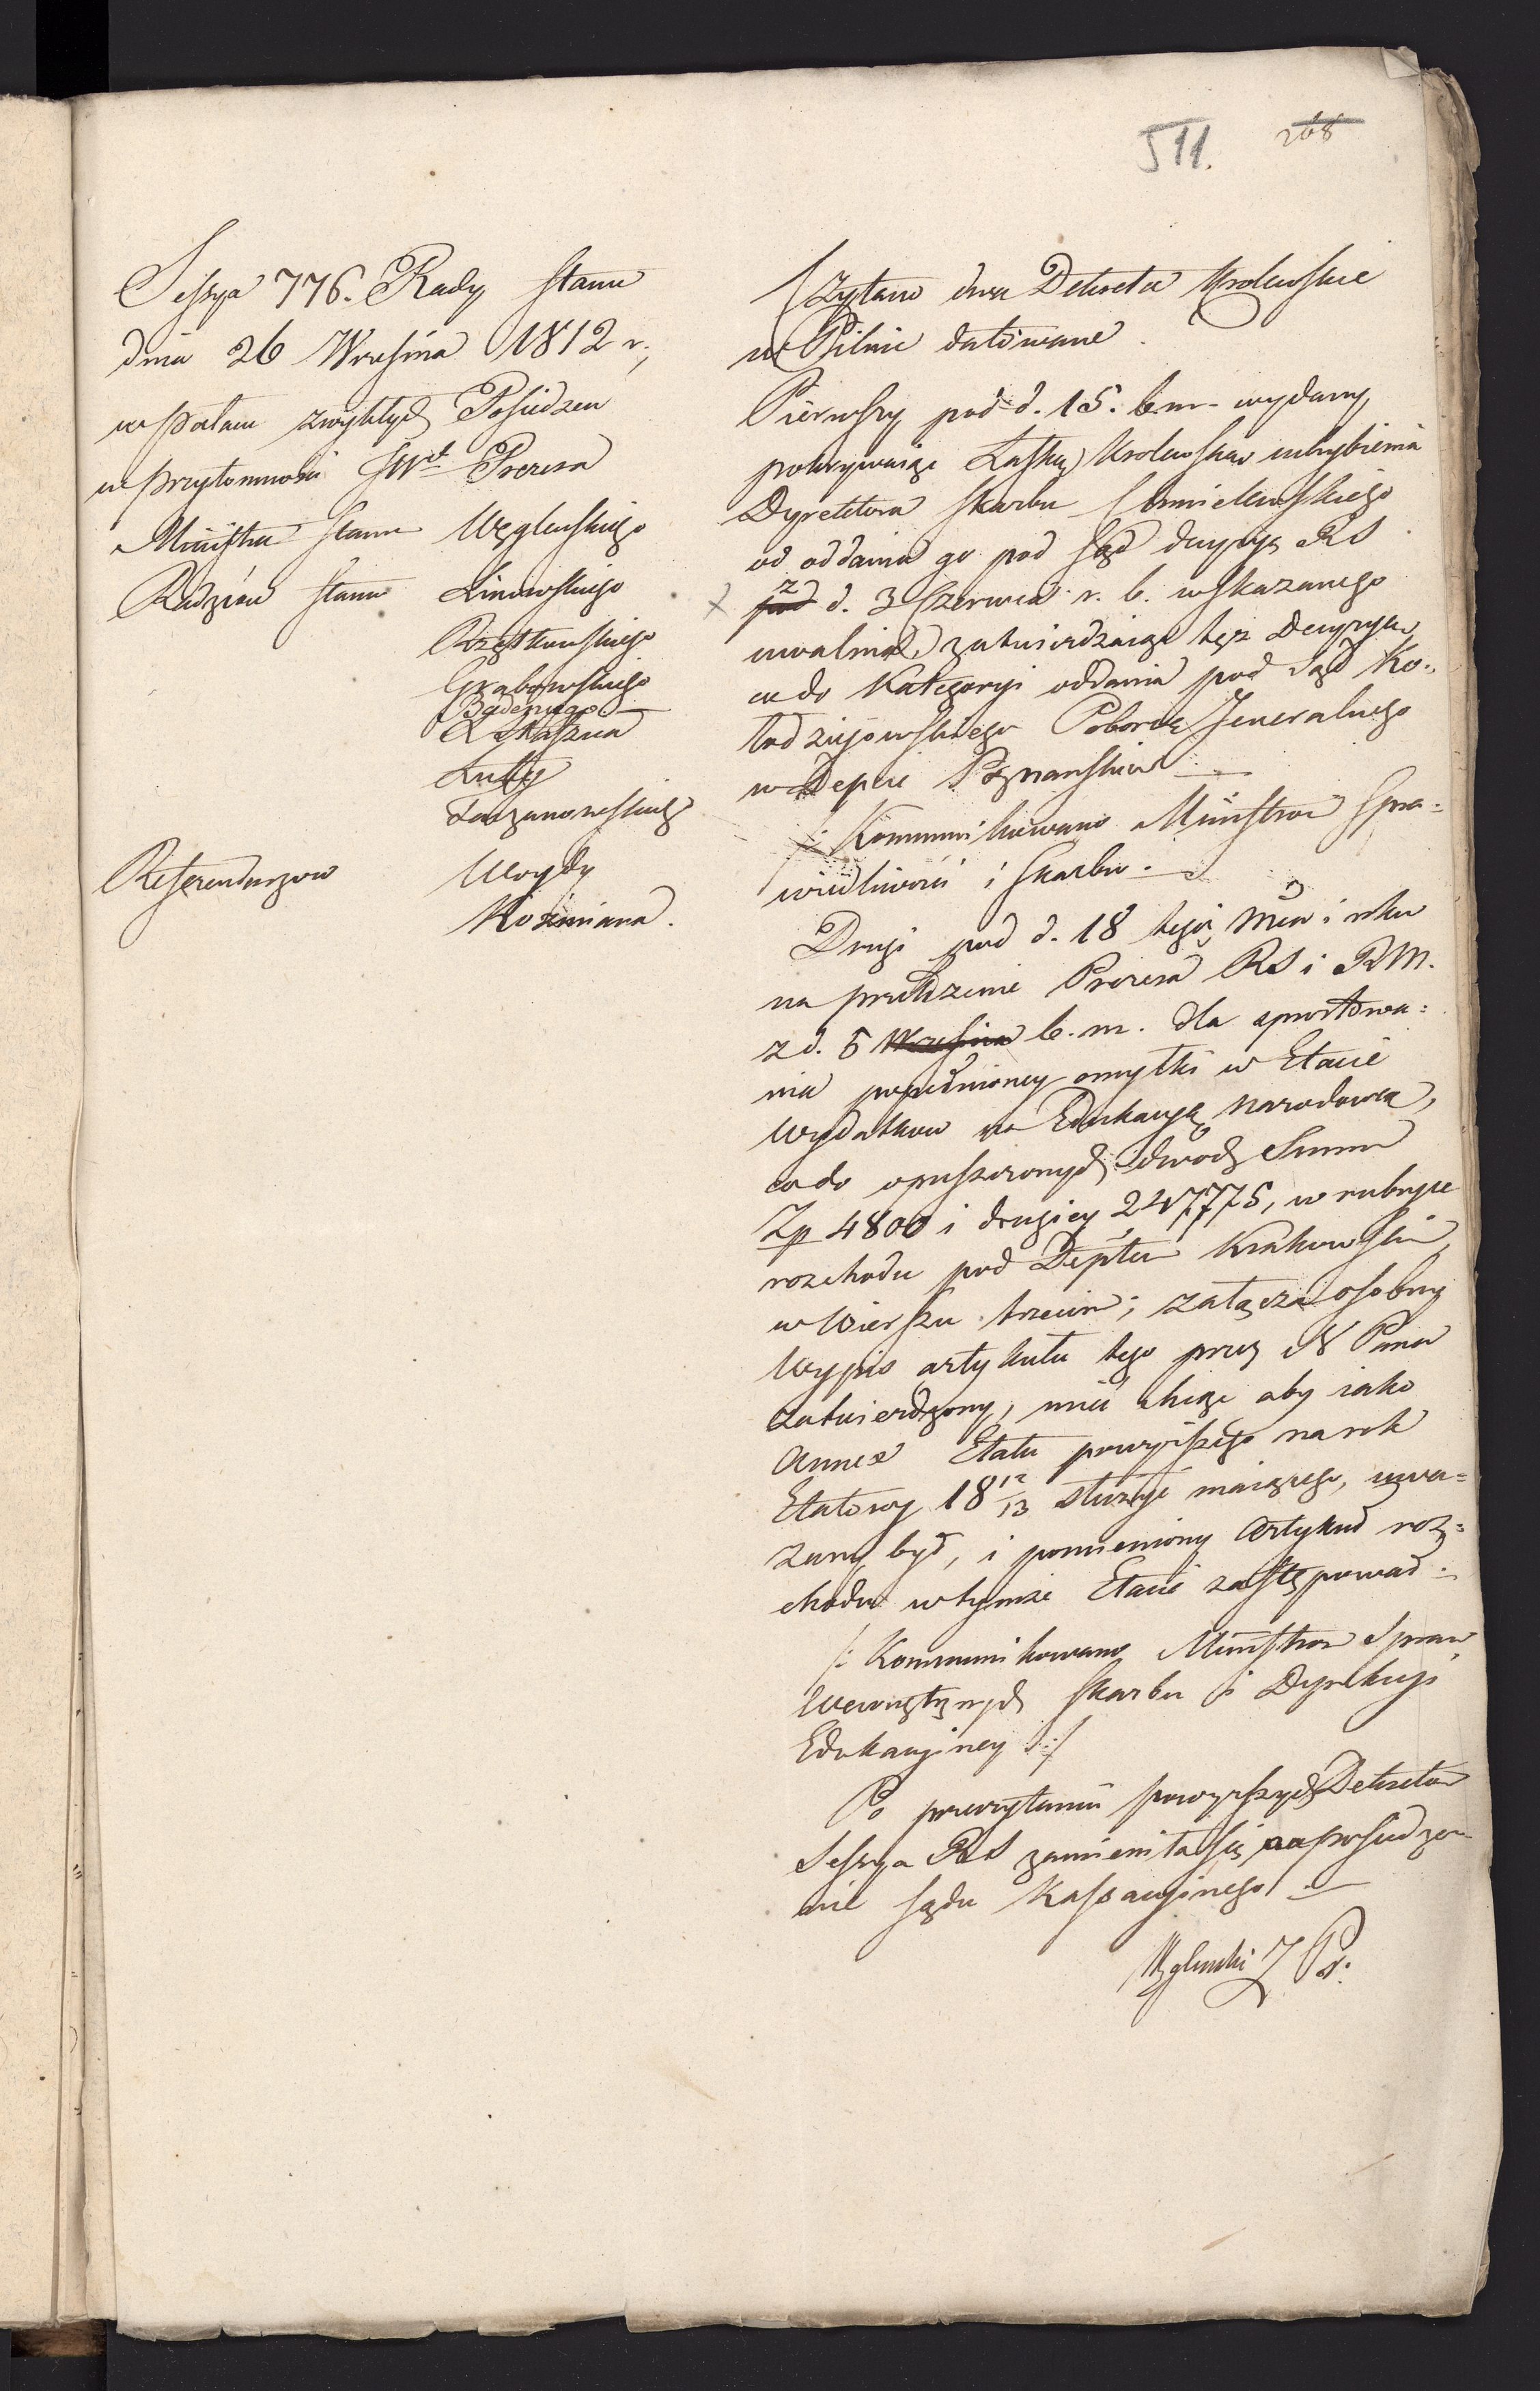 511. 268
Sessya 776. Rady Stanu
dnia 26 Wrześnïa 1812 r.,
w Pałacu zwykłych Posiedzen
w przytomności JWo Prezesa
Ministra Stanu Węgleńskiego
Radzców Stanu Linowskiego
Rzętkowskiego
Grabowskiego
Badeniego
Łuby
Tarzanowskiego
Referendarzow Woydy
Koźmiana.
Czytano dwa Dekreta Krolewskie
w Pilnie datowane.
Pierwszy pod d. 15. b.m. wydany,
pokrywaiąc Łaską Krolewską uchybienia
Dyrektora Skarbu Chmielewskiego
od oddania go pod Sąd decyzyą RS
z pod d. 3 Czerwca r. b. wskazanego
uwalnia, zatwierdzaiąc tęż Decyzyą
co do Kategoryi oddania pod Sąd Ko-
łodziejowskiego Poborcę Jeneralnego
w Depcie Poznanskim
/: Kommunikowano Ministrow Spra-
wiedliwości i Skarbu.
Drugi pod d. 18 tegoż Mca i roku
na przełożenie Prezesa RS i RM.
z d. 5 Września b.m. dla sprostowa=
nia popełnioney omyłki w Etacie
Wydatkow na Edukacyą Narodową,
co do opuszczonych dwóch Summ
Zp 4800 i drugiey 247775, w rubryce
rozchodu pod Deptem Krakowskim,
w Wierszu trzecim; załącza osobny
Wypis artykułu tego przez N Pana
zatwierdzony, mieć chcąc aby iako
Annex Etatu powyższego na rok
Etatowy 18 12/13 służyć maiącego, uwa=
żany był, i pomieniony Artykuł roz=
chodu w tymże Etacie zastępował.
/: Kommunikowano Ministrow Spraw
Wewnętrznych Skarbu i Dyrekcyi
Edukacyiney :/
Po przeczytaniu powyższych Dekretow
Sessya RS zamieniła się na posiedze-
nie Sądu Kassacyinego.
Węgleński Z Pr.